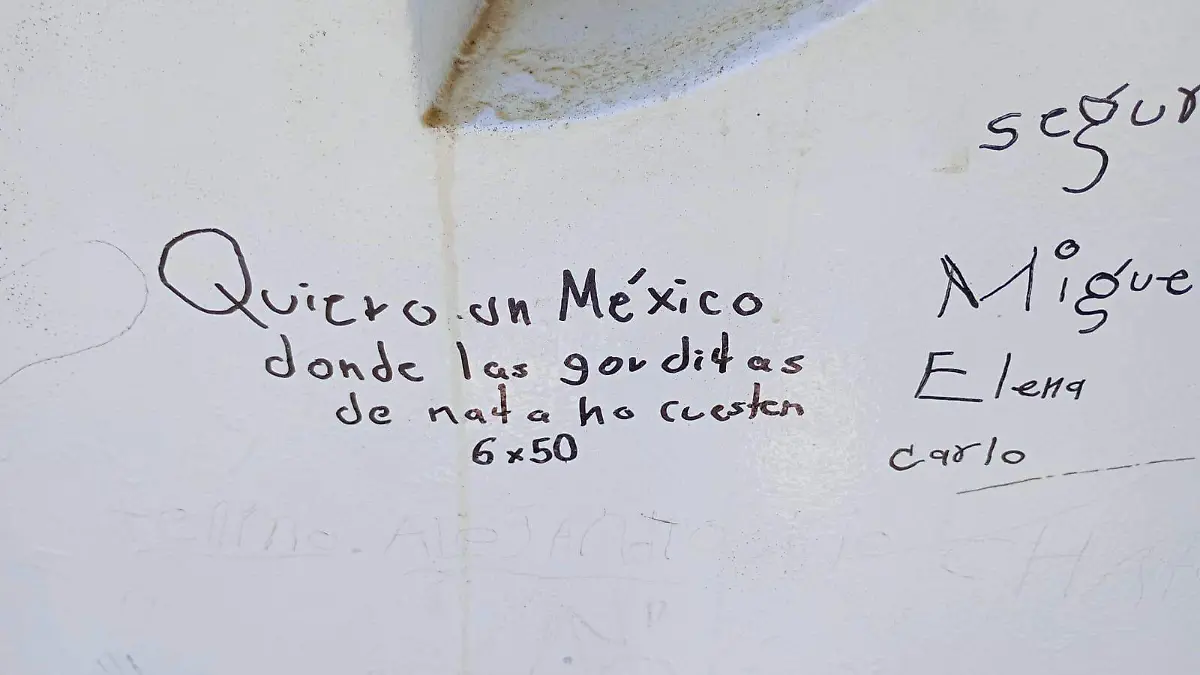 Quiero un México
donde las gorditas
de nata no cuesten
6x50
segur
Migue
Elena
carlo